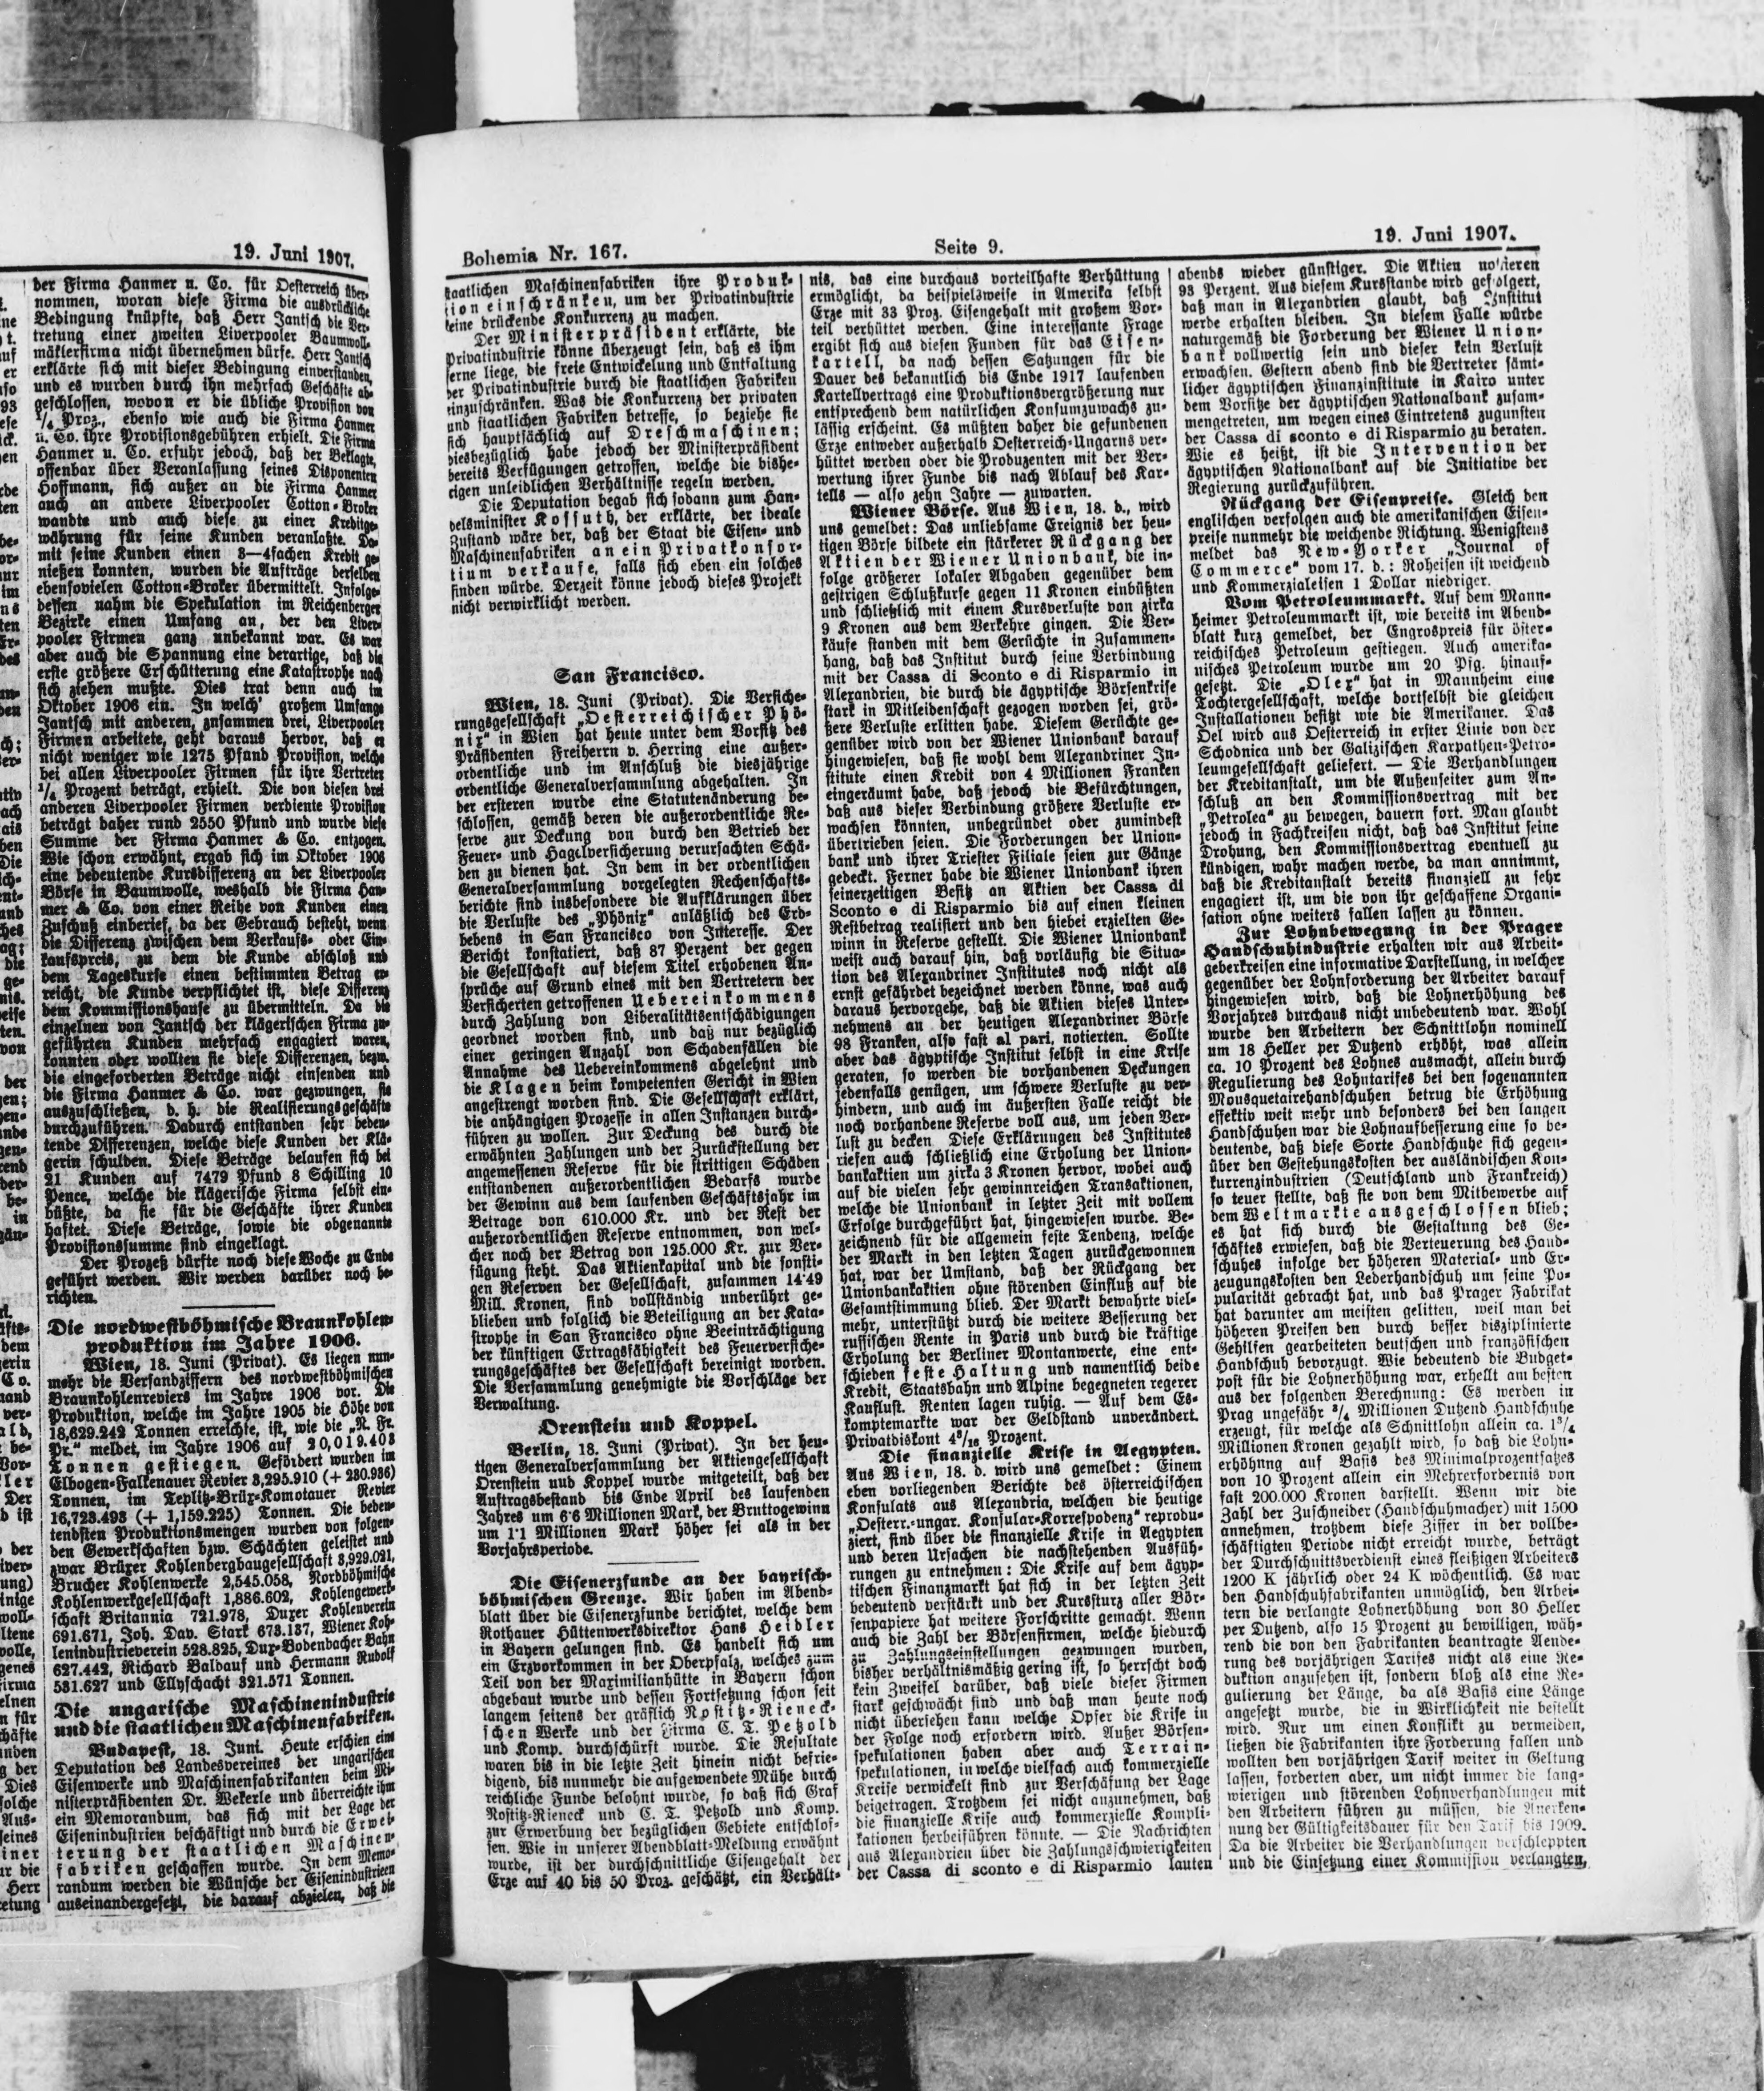 19. Juni 1907.
der Firma Hanmer u. Co. für Oesterreich über-
nommen, woran diese Firma die ausdrückliche
Bedingung knüpfte, daß Herr Jantsch die Ver-
tretung einer zweiten Liverpooler Baumwoll-
mäklerfirma nicht übernehmen dürfe. Herr Jantsch
erklärte sich mit dieser Bedingung einverstanden,
und es wurden durch ihn mehrfach Geschäfte ab-
geschlossen, wovon er die übliche Provision von
1/4 Proz., ebenso wie auch die Firma Hanmer
u. Co. ihre Provisionsgebühren erhielt. Die Firma
Hanmer u. Co. erfuhr jedoch, daß der Beklagte,
offenbar über Veranlassung seines Disponenten
Hoffmann, sich außer an die Firma Hanmer
auch an andere Liverpooler Cotton-Broker
wandte und auch diese zu einer Kreditge-
währung für seine Kunden veranlaßte. Da-
mit seine Kunden einen 3—4fachen Kredit ge-
nießen konnten, wurden die Aufträge derselben
ebensovielen Cotton-Broker übermittelt. Infolge-
dessen nahm die Spekulation im Reichenberger
Bezirke einen Umfang an, der den Liver-
pooler Firmen ganz unbekannt war. Es war
aber auch die Spannung eine derartige, daß die
erste größere Erschütterung eine Katastrophe nach
sich ziehen mußte. Dies trat denn auch im
Oktober 1906 ein. In welch' großem Umfange
Jantsch mit anderen, zusammen drei, Liverpooler
Firmen arbeitete, geht daraus hervor, daß er
nicht weniger wie 1275 Pfund Provision, welche
bei allen Liverpooler Firmen für ihre Vertreter
1/4 Prozent beträgt, erhielt. Die von diesen drei
anderen Liverpooler Firmen verdiente Provision
beträgt daher rund 2550 Pfund und wurde diese
Summe der Firma Hanmer & Co. entzogen.
Wie schon erwähnt, ergab sich im Oktober 1906
eine bedeutende Kursdifferenz an der Liverpooler
Börse in Baumwolle, weshalb die Firma Han-
mer & Co. von einer Reihe von Kunden einen
Zuschuß einberief, da der Gebrauch besteht, wenn
die Differenz zwischen dem Verkaufs- oder Ein-
kaufspreis, zu dem die Kunde abschloß und
dem Tageskurse einen bestimmten Betrag er-
reicht, die Kunde verpflichtet ist, diese Differenz
dem Kommissionshause zu übermitteln. Da die
einzelnen von Jantsch der klägerischen Firma zu-
geführten Kunden mehrfach engagiert waren,
konnten oder wollten sie diese Differenzen, bezw.
die eingeforderten Beträge nicht einsenden und
die Firma Hanmer & Co. war gezwungen, sie
auszuschließen, d. h. die Realisierungsgeschäfte
durchzuführen. Dadurch entstanden sehr bedeu-
tende Differenzen, welche diese Kunden der Klä-
gerin schulden. Diese Beträge belaufen sich bei
21 Kunden auf 7479 Pfund 8 Schilling 10
Pence, welche die klägerische Firma selbst ein-
büßte, da sie für die Geschäfte ihrer Kunden
haftet. Diese Beträge, sowie die obgenannte
Provisionssumme sind eingeklagt.
Der Prozeß dürfte noch diese Woche zu Ende
geführt werden. Wir werden darüber noch be-
richten.
Die nordwestböhmische Braunkohlen-
produktion im Jahre 1906.
Wien, 18. Juni (Privat). Es liegen nun-
mehr die Versandziffern des nordwestböhmischen
Braunkohlenreviers im Jahre 1906 vor. Die
Produktion, welche im Jahre 1905 die Höhe von
18,629.242 Tonnen erreichte, ist, wie die „N. Fr.
Pr." meldet, im Jahre 1906 auf 20,019.403
Tonnen gestiegen. Gefördert wurden im
Elbogen-Falkenauer Revier 3,295.910 (+ 230.936)
Tonnen, im Teplitz-Brüx-Komotauer Revier
16,723.493 (+ 1,159.225) Tonnen. Die bedeu-
tendsten Produktionsmengen wurden von folgen-
den Gewerkschaften bzw. Schächten geleistet und
zwar Brüxer Kohlenbergbaugesellschaft 3,929.021,
Brucher Kohlenwerke 2,545.058, Nordböhmische
Kohlenwerkgesellschaft 1,886.602, Kohlengewerk-
schaft Britannia 721.978, Duxer Kohlenverein
691.671, Joh. Dav. Stark 673.137, Wiener Koh-
lenindustrieverein 528.825, Dux-Bodenbacher Bahn
627.442, Richard Baldauf und Hermann Rudolf
531.627 und Ellyschacht 321.571 Tonnen.
Die ungarische Maschinenindustrie
und die staatlichen Maschinenfabriken.
Budapest, 18. Juni. Heute erschien eine
Deputation des Landesvereines der ungarischen
Eisenwerke und Maschinenfabrikanten beim Mi-
nisterpräsidenten Dr. Wekerle und überreichte ihm
ein Memorandum, das sich mit der Lage der
Eisenindustrien beschäftigt und durch die Erwei-
terung der staatlichen Maschinen-
fabriken geschaffen wurde. In dem Memo-
randum werden die Wünsche der Eisenindustrien
auseinandergesetzt, die darauf abzielen, daß die
Bohemia Nr. 167.
Seite 9.
19. Juni 1907.
staatlichen Maschinenfabriken ihre Produk-
tion einschränken, um der Privatindustrie
keine drückende Konkurrenz zu machen.
Der Ministerpräsident erklärte, die
Privatindustrie könne überzeugt sein, daß es ihm
ferne liege, die freie Entwickelung und Entfaltung
der Privatindustrie durch die staatlichen Fabriken
einzuschränken. Was die Konkurrenz der privaten
und staatlichen Fabriken betreffe, so beziehe sie
sich hauptsächlich auf Dreschmaschinen;
diesbezüglich habe jedoch der Ministerpräsident
bereits Verfügungen getroffen, welche die bishe-
rigen unleidlichen Verhältnisse regeln werden.
Die Deputation begab sich sodann zum Han-
delsminister Kossuth, der erklärte, der ideale
Zustand wäre der, daß der Staat die Eisen- und
Maschinenfabriken an ein Privatkonsor-
tium verkaufe, falls sich eben ein solches
finden würde. Derzeit könne jedoch dieses Projekt
nicht verwirklicht werden.
San Francisco.
Wien, 18. Juni (Privat). Die Versiche-
rungsgesellschaft „Oesterreichischer Phö-
nix" in Wien hat heute unter dem Vorsitz des
Präsidenten Freiherrn v. Herring eine außer-
ordentliche und im Anschluß die diesjährige
ordentliche Generalversammlung abgehalten. In
der ersteren wurde eine Statutenänderung be-
schlossen, gemäß deren die außerordentliche Re-
serve zur Deckung von durch den Betrieb der
Feuer- und Hagelversicherung verursachten Schä-
den zu dienen hat. In dem in der ordentlichen
Generalversammlung vorgelegten Rechenschafts-
berichte sind insbesondere die Aufklärungen über
die Verluste des „Phönix" anläßlich des Erd-
bebens in San Francisco von Interesse. Der
Bericht konstatiert, daß 87 Perzent der gegen
die Gesellschaft auf diesem Titel erhobenen An-
sprüche auf Grund eines mit den Vertretern der
Versicherten getroffenen Uebereinkommens
durch Zahlung von Liberalitätsentschädigungen
geordnet worden sind, und daß nur bezüglich
einer geringen Anzahl von Schadenfällen die
Annahme des Uebereinkommens abgelehnt und
die Klagen beim kompetenten Gericht in Wien
angestrengt worden sind. Die Gesellschaft erklärt,
die anhängigen Prozesse in allen Instanzen durch-
führen zu wollen. Zur Deckung des durch die
erwähnten Zahlungen und der Zurückstellung der
angemessenen Reserve für die strittigen Schäden
entstandenen außerordentlichen Bedarfs wurde
der Gewinn aus dem laufenden Geschäftsjahr im
Betrage von 610.000 Kr. und der Rest der
außerordentlichen Reserve entnommen, von wel-
cher noch der Betrag von 125.000 Kr. zur Ver-
fügung steht. Das Aktienkapital und die sonsti-
gen Reserven der Gesellschaft, zusammen 14·49
Mill. Kronen, sind vollständig unberührt ge-
blieben und folglich die Beteiligung an der Kata-
strophe in San Francisco ohne Beeinträchtigung
der künftigen Ertragsfähigkeit des Feuerversiche-
rungsgeschäftes der Gesellschaft bereinigt worden.
Die Versammlung genehmigte die Vorschläge der
Verwaltung.
Orenstein und Koppel.
Berlin, 18. Juni (Privat). In der heu-
tigen Generalversammlung der Aktiengesellschaft
Orenstein und Koppel wurde mitgeteilt, daß der
Auftragsbestand bis Ende April des laufenden
Jahres um 6·6 Millionen Mark, der Bruttogewinn
um 1·1 Millionen Mark höher sei als in der
Vorjahrsperiode.
Die Eisenerzfunde an der bayrisch-
böhmischen Grenze. Wir haben im Abend-
blatt über die Eisenerzfunde berichtet, welche dem
Rothauer Hüttenwerksdirektor Hans Heidler
in Bayern gelungen sind. Es handelt sich um
ein Erzvorkommen in der Oberpfalz, welches zum
Teil von der Maximilianhütte in Bayern schon
abgebaut wurde und dessen Fortsetzung schon seit
langem seitens der gräflich Nostitz-Rieneck-
schen Werke und der Firma C. T. Petzold
und Komp. durchschürft wurde. Die Resultate
waren bis in die letzte Zeit hinein nicht befrie-
digend, bis nunmehr die aufgewendete Mühe durch
reichliche Funde belohnt wurde, so daß sich Graf
Nostitz-Rieneck und C. T. Petzold und Komp.
zur Erwerbung der bezüglichen Gebiete entschlos-
sen. Wie in unserer Abendblatt-Meldung erwähnt
wurde, ist der durchschnittliche Eisengehalt der
Erze auf 40 bis 50 Proz. geschätzt, ein Verhält-
nis, das eine durchaus vorteilhafte Verhüttung
ermöglicht, da beispielsweise in Amerika selbst
Erze mit 33 Proz. Eisengehalt mit großem Vor-
teil verhüttet werden. Eine interessante Frage
ergibt sich aus diesen Funden für das Eisen-
kartell, da nach dessen Satzungen für die
Dauer des bekanntlich bis Ende 1917 laufenden
Kartellvertrags eine Produktionsvergrößerung nur
entsprechend dem natürlichen Konsumzuwachs zu-
lässig erscheint. Es müßten daher die gefundenen
Erze entweder außerhalb Oesterreich-Ungarns ver-
hüttet werden oder die Produzenten mit der Ver-
wertung ihrer Funde bis nach Ablauf des Kar-
tells — also zehn Jahre — zuwarten.
Wiener Börse. Aus Wien, 18. d., wird
uns gemeldet: Das unliebsame Ereignis der heu-
tigen Börse bildete ein stärkerer Rückgang der
Aktien der Wiener Unionbank, die in-
folge größerer lokaler Abgaben gegenüber dem
gestrigen Schlußkurse gegen 11 Kronen einbüßten
und schließlich mit einem Kursverluste von zirka
9 Kronen aus dem Verkehre gingen. Die Ver-
käufe standen mit dem Gerüchte in Zusammen-
hang, daß das Institut durch seine Verbindung
mit der Cassa di Sconto e di Risparmio in
Alexandrien, die durch die ägyptische Börsenkrise
stark in Mitleidenschaft gezogen worden sei, grö-
ßere Verluste erlitten habe. Diesem Gerüchte ge-
genüber wird von der Wiener Unionbank darauf
hingewiesen, daß sie wohl dem Alexandriner In-
stitute einen Kredit von 4 Millionen Franken
eingeräumt habe, daß jedoch die Befürchtungen,
daß aus dieser Verbindung größere Verluste er-
wachsen könnten, unbegründet oder zumindest
übertrieben seien. Die Forderungen der Union-
bank und ihrer Triester Filiale seien zur Gänze
gedeckt. Ferner habe die Wiener Unionbank ihren
seinerzeitigen Besitz an Aktien der Cassa di
Sconto e di Risparmio bis auf einen kleinen
Restbetrag realisiert und den hiebei erzielten Ge-
winn in Reserve gestellt. Die Wiener Unionbank
weist auch darauf hin, daß vorläufig die Situa-
tion des Alexandriner Institutes noch nicht als
ernst gefährdet bezeichnet werden könne, was auch
daraus hervorgehe, daß die Aktien dieses Unter-
nehmens an der heutigen Alexandriner Börse
98 Franken, also fast al pari, notierten. Sollte
aber das ägyptische Institut selbst in eine Krise
geraten, so werden die vorhandenen Deckungen
jedenfalls genügen, um schwere Verluste zu ver-
hindern, und auch im äußersten Falle reicht die
noch vorhandene Reserve voll aus, um jeden Ver-
lust zu decken. Diese Erklärungen des Institutes
riefen auch schließlich eine Erholung der Union-
bankaktien um zirka 3 Kronen hervor, wobei auch
auf die vielen sehr gewinnreichen Transaktionen,
welche die Unionbank in letzter Zeit mit vollem
Erfolge durchgeführt hat, hingewiesen wurde. Be-
zeichnend für die allgemein feste Tendenz, welche
der Markt in den letzten Tagen zurückgewonnen
hat, war der Umstand, daß der Rückgang der
Unionbankaktien ohne störenden Einfluß auf die
Gesamtstimmung blieb. Der Markt bewahrte viel-
mehr, unterstützt durch die weitere Besserung der
russischen Rente in Paris und durch die kräftige
Erholung der Berliner Montanwerte, eine ent-
schieden feste Haltung und namentlich beide
Kredit, Staatsbahn und Alpine begegneten regerer
Kauflust. Renten lagen ruhig. — Auf dem Es-
komptemarkte war der Geldstand unverändert.
Privatdiskont 4 9/16 Prozent.
Die finanzielle Krise in Aegypten.
Aus Wien, 18. d. wird uns gemeldet: Einem
eben vorliegenden Berichte des österreichischen
Konsulats aus Alexandria, welchen die heutige
„Oesterr.-ungar. Konsular-Korrespodenz" reprodu-
ziert, sind über die finanzielle Krise in Aegypten
und deren Ursachen die nachstehenden Ausfüh-
rungen zu entnehmen: Die Krise auf dem ägyp-
tischen Finanzmarkt hat sich in der letzten Zeit
bedeutend verstärkt und der Kurssturz aller Bör-
senpapiere hat weitere Forschritte gemacht. Wenn
auch die Zahl der Börsenfirmen, welche hiedurch
zu Zahlungseinstellungen gezwungen wurden,
bisher verhältnismäßig gering ist, so herrscht doch
kein Zweifel darüber, daß viele dieser Firmen
stark geschwächt sind und daß man heute noch
nicht übersehen kann welche Opfer die Krise in
der Folge noch erfordern wird. Außer Börsen-
spekulationen haben aber auch Terrain-
spekulationen, in welche vielfach auch kommerzielle
Kreise verwickelt sind zur Verschäfung der Lage
beigetragen. Trotzdem sei nicht anzunehmen, daß
die finanzielle Krise auch kommerzielle Kompli-
kationen herbeiführen könnte. — Die Nachrichten
aus Alexandrien über die Zahlungsschwierigkeiten
der Cassa di sconto e di Risparmio lauten
abends wieder günstiger. Die Aktien notieren
93 Perzent. Aus diesem Kursstande wird gefolgert,
daß man in Alexandrien glaubt, daß Institut
werde erhalten bleiben. In diesem Falle würde
naturgemäß die Forderung der Wiener Union-
bank vollwertig sein und dieser kein Verlust
erwachsen. Gestern abend sind die Vertreter sämt-
licher ägyptischen Finanzinstitute in Kairo unter
dem Vorsitze der ägyptischen Nationalbank zusam-
mengetreten, um wegen eines Eintretens zugunsten
der Cassa di sconto e di Risparmio zu beraten.
Wie es heißt, ist die Intervention der
ägyptischen Nationalbank auf die Initiative der
Regierung zurückzuführen.
Rückgang der Eisenpreise. Gleich den
englischen verfolgen auch die amerikanischen Eisen-
preise nunmehr die weichende Richtung. Wenigstens
meldet das New-Yorker „Journal of
Commerce" vom 17. d.: Roheisen ist weichend
und Kommerzialeisen 1 Dollar niedriger.
Vom Petroleummarkt. Auf dem Mann-
heimer Petroleummarkt ist, wie bereits im Abend-
blatt kurz gemeldet, der Engrospreis für öster-
reichisches Petroleum gestiegen. Auch amerika-
nisches Petroleum wurde um 20 Pfg. hinauf-
gesetzt. Die „Olex" hat in Mannheim eine
Tochtergesellschaft, welche dortselbst die gleichen
Installationen besitzt wie die Amerikaner. Das
Oel wird aus Oesterreich in erster Linie von der
Schodnica und der Galizischen Karpathen-Petro-
leumgesellschaft geliefert. — Die Verhandlungen
der Kreditanstalt, um die Außenseiter zum An-
schluß an den Kommissionsvertrag mit der
„Petrolea" zu bewegen, dauern fort. Man glaubt
jedoch in Fachkreisen nicht, daß das Institut seine
Drohung, den Kommissionsvertrag eventuell zu
kündigen, wahr machen werde, da man annimmt,
daß die Kreditanstalt bereits finanziell zu sehr
engagiert ist, um die von ihr geschaffene Organi-
sation ohne weiters fallen lassen zu können.
Zur Lohnbewegung in der Prager
Handschuhindustrie erhalten wir aus Arbeit-
geberkreisen eine informative Darstellung, in welcher
gegenüber der Lohnforderung der Arbeiter darauf
hingewiesen wird, daß die Lohnerhöhung des
Vorjahres durchaus nicht unbedeutend war. Wohl
wurde den Arbeitern der Schnittlohn nominell
um 18 Heller per Dutzend erhöht, was allein
ca. 10 Prozent des Lohnes ausmacht, allein durch
Regulierung des Lohntarifes bei den sogenannten
Mousquetairehandschuhen betrug die Erhöhung
effektiv weit mehr und besonders bei den langen
Handschuhen war die Lohnaufbesserung eine so be-
deutende, daß diese Sorte Handschuhe sich gegen-
über den Gestehungskosten der ausländischen Kon-
kurrenzindustrien (Deutschland und Frankreich)
so teuer stellte, daß sie von dem Mitbewerbe auf
dem Weltmarkte ausgeschlossen blieb;
es hat sich durch die Gestaltung des Ge-
schäftes erwiesen, daß die Verteuerung des Hand-
schuhes infolge der höheren Material- und Er-
zeugungskosten den Lederhandschuh um seine Po-
pularität gebracht hat, und das Prager Fabrikat
hat darunter am meisten gelitten, weil man bei
höheren Preisen den durch besser disziplinierte
Gehilfen gearbeiteten deutschen und französischen
Handschuh bevorzugt. Wie bedeutend die Budget-
post für die Lohnerhöhung war, erhellt am besten
aus der folgenden Berechnung: Es werden in
Prag ungefähr 3/4 Millionen Dutzend Handschuhe
erzeugt, für welche als Schnittlohn allein ca. 1 3/4
Millionen Kronen gezahlt wird, so daß die Lohn-
erhöhung auf Basis des Minimalprozentsatzes
von 10 Prozent allein ein Mehrerfordernis von
fast 200.000 Kronen darstellt. Wenn wir die
Zahl der Zuschneider (Handschuhmacher) mit 1500
annehmen, trotzdem diese Ziffer in der vollbe-
schäftigten Periode nicht erreicht wurde, beträgt
der Durchschnittsverdienst eines fleißigen Arbeiters
1200 K jährlich oder 24 K wöchentlich. Es war
den Handschuhfabrikanten unmöglich, den Arbei-
tern die verlangte Lohnerhöhung von 30 Heller
per Dutzend, also 15 Prozent zu bewilligen, wäh-
rend die von den Fabrikanten beantragte Aende-
rung des vorjährigen Tarifes nicht als eine Re-
duktion anzusehen ist, sondern bloß als eine Re-
gulierung der Länge, da als Basis eine Länge
angesetzt wurde, die in Wirklichkeit nie bestellt
wird. Nur um einen Konflikt zu vermeiden,
ließen die Fabrikanten ihre Forderung fallen und
wollten den vorjährigen Tarif weiter in Geltung
lassen, forderten aber, um nicht immer die lang-
wierigen und störenden Lohnverhandlungen mit
den Arbeitern führen zu müssen, die Anerken-
nung der Gültigkeitsdauer für den Tarif bis 1909.
Da die Arbeiter die Verhandlungen verschleppten
und die Einsetzung einer Kommission verlangten,